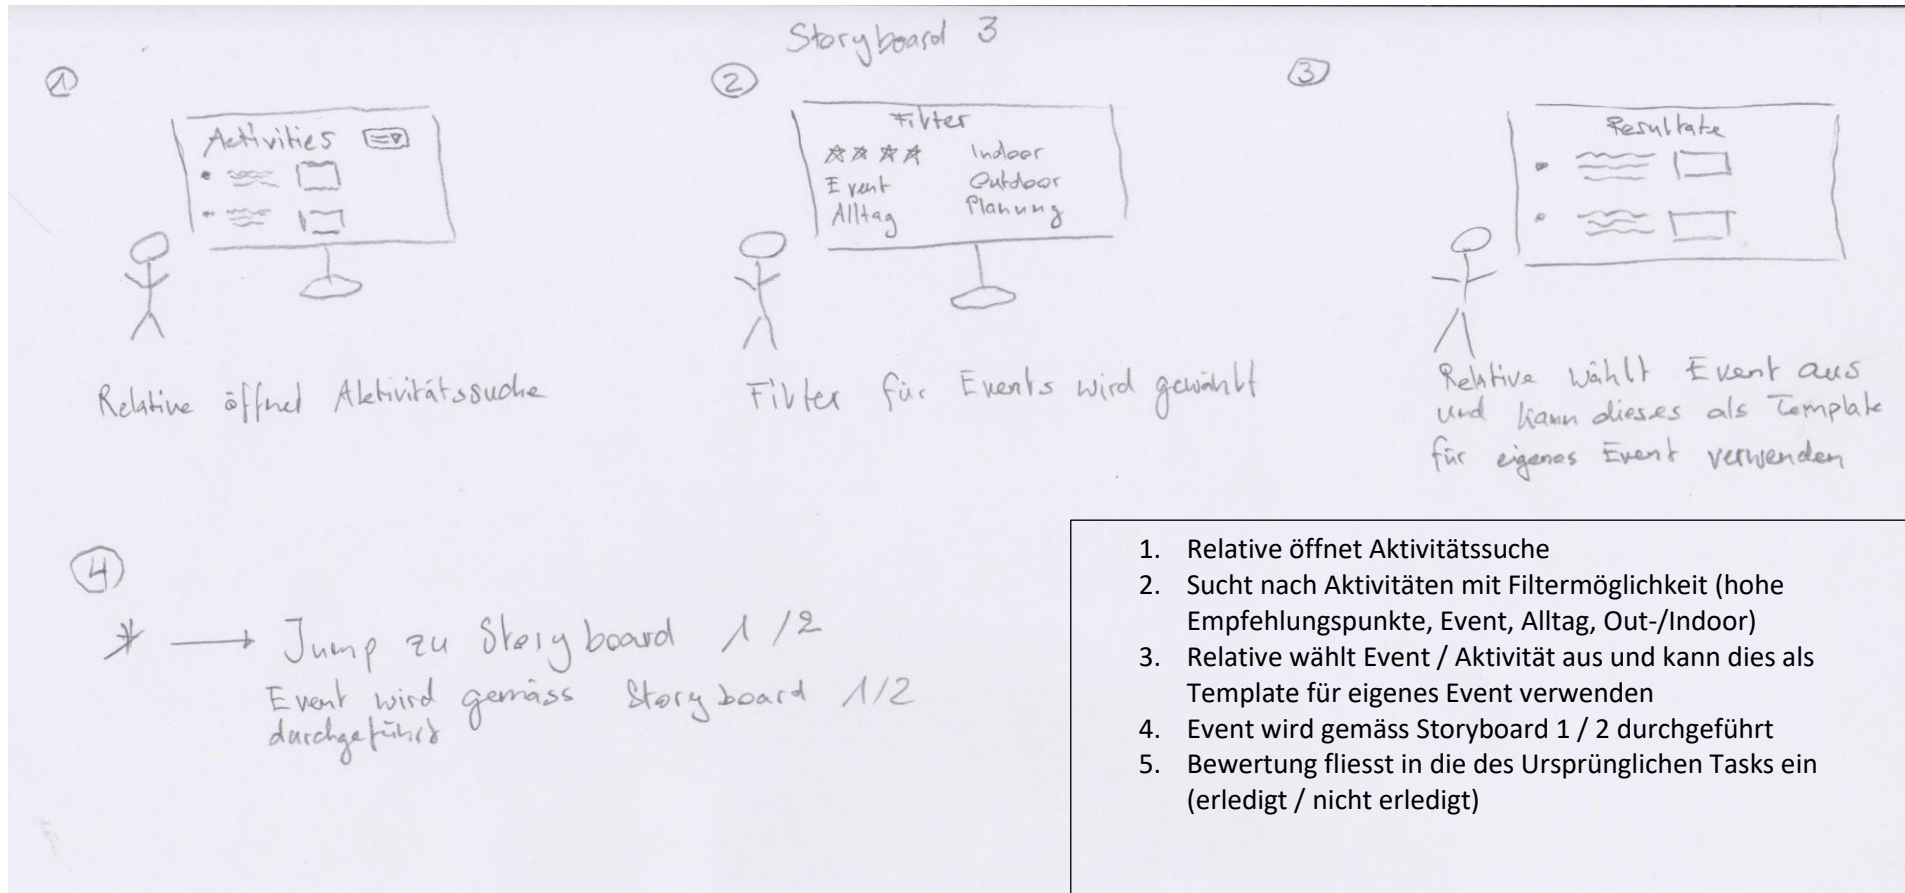 Storyboard 3
1
Activities
Relative öffnet Aktivitätssuche
2
Filter
Indoor
Event Outdoor
Alltag Planung
Filter für Events wird gewählt
3
Resultate
Relative wählt Event aus
und kann dieses als Template
für eigenes Event verwenden
4
* → Jump zu Storyboard 1/2
Event wird gemäss Storyboard 1/2
durchgeführt
1. Relative öffnet Aktivitätssuche
2. Sucht nach Aktivitäten mit Filtermöglichkeit (hohe
Empfehlungspunkte, Event, Alltag, Out-/Indoor)
3. Relative wählt Event / Aktivität aus und kann dies als
Template für eigenes Event verwenden
4. Event wird gemäss Storyboard 1 / 2 durchgeführt
5. Bewertung fliesst in die des Ursprünglichen Tasks ein
(erledigt / nicht erledigt)